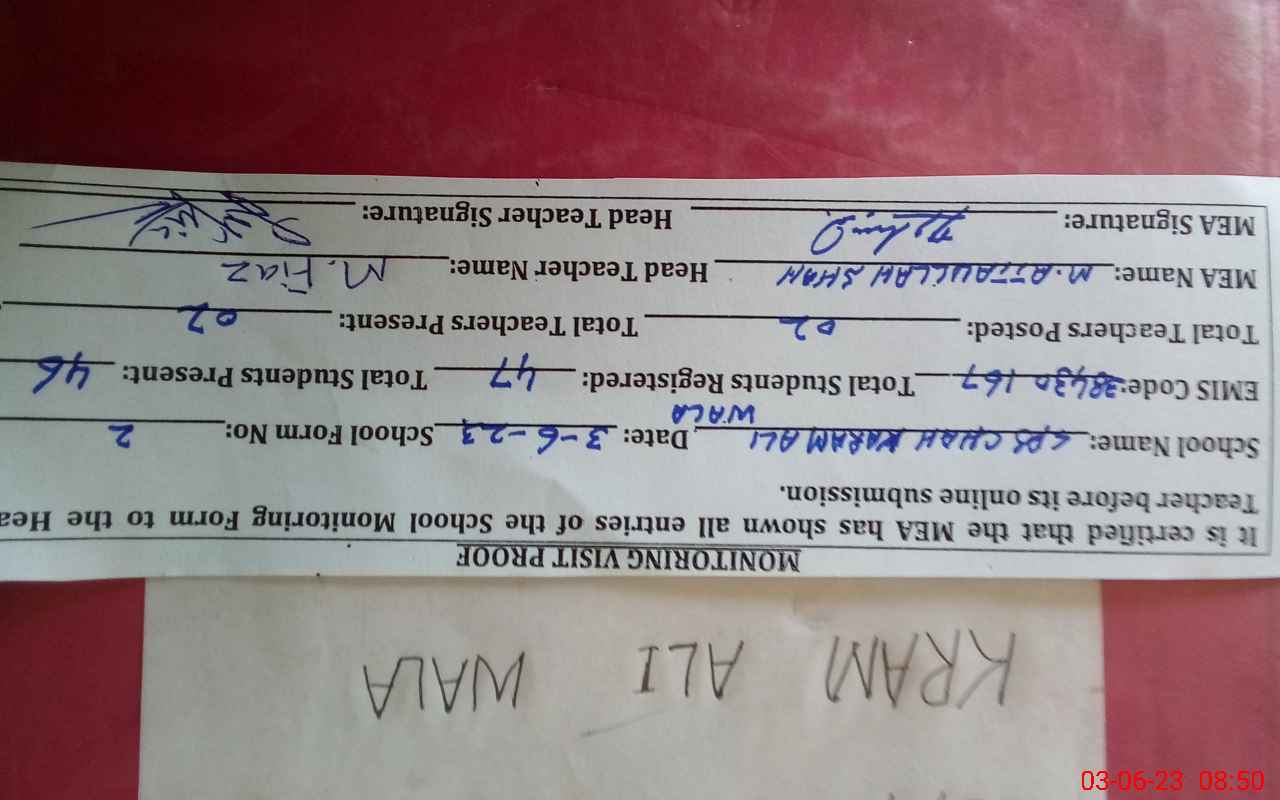 KRAM ALI WALA
MONITORING VISIT PROOF
It is certified that the MEA has shown all entries of the School Monitoring Form to the Hea
Teacher before its online submission.
School Name: GPS CHAH KARAM ALI WALA Date: 3-6-23 School Form No: 2
EMIS Code: 38430167 Total Students Registered: 47 Total Students Present: 46
Total Teachers Posted: 02 Total Teachers Present: 02
MEA Name: M. ATTAULLAH SHAH Head Teacher Name: M. Fiaz
MEA Signature: Head Teacher Signature:
03-06-23 08:50